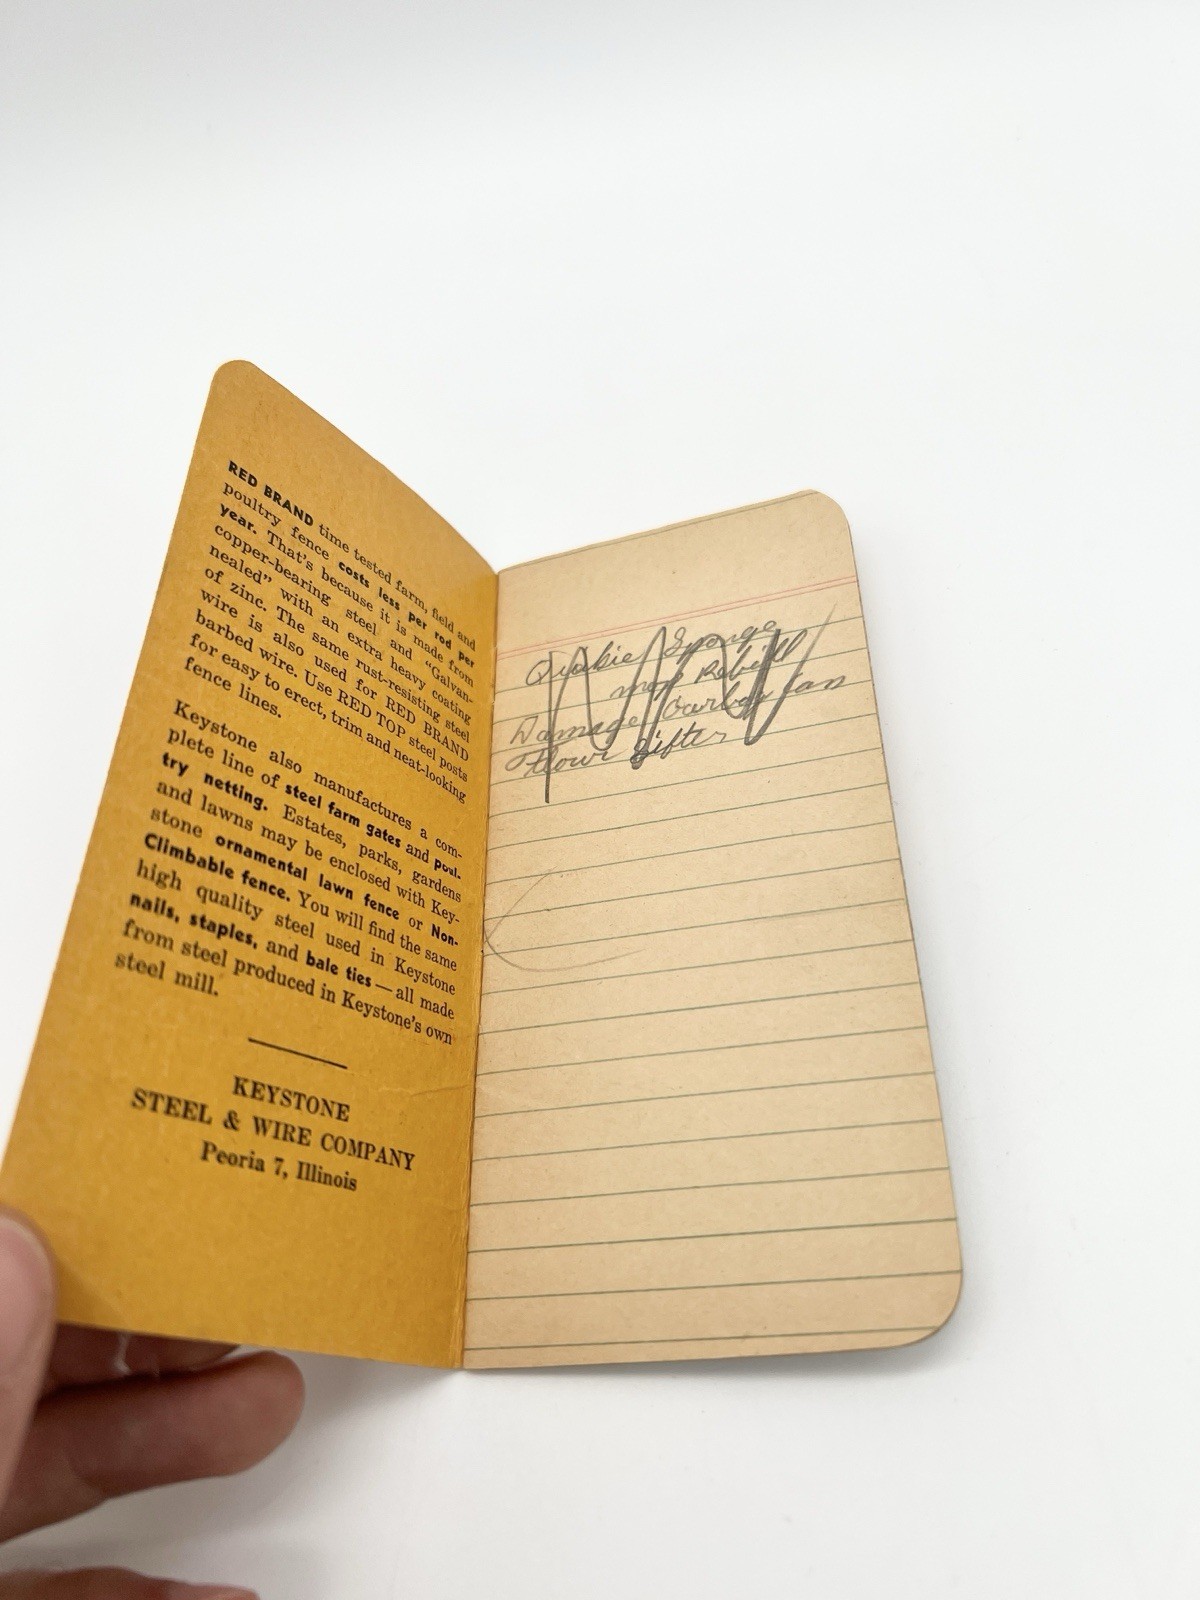 RED BRAND time tested farm, field and
poultry fence costs less per rod per
year. That's because it is made from
copper-bearing steel and "Galvan-
nealed" with an extra heavy coating
of zinc. The same rust-resisting steel
wire is also used for RED BRAND
barbed wire. Use RED TOP steel posts
for easy to erect, trim and neat-looking
fence lines.
Keystone also manufactures a com-
plete line of steel farm gates and poul-
try netting. Estates, parks, gardens
and lawns may be enclosed with Key-
stone ornamental lawn fence or Non-
Climbable fence. You will find the same
high quality steel used in Keystone
nails, staples, and bale ties — all made
from steel produced in Keystone's own
steel mill.
KEYSTONE
STEEL & WIRE COMPANY
Peoria 7, Illinois
Sponge
mop Refill
Damage Garbage can
flour sifter